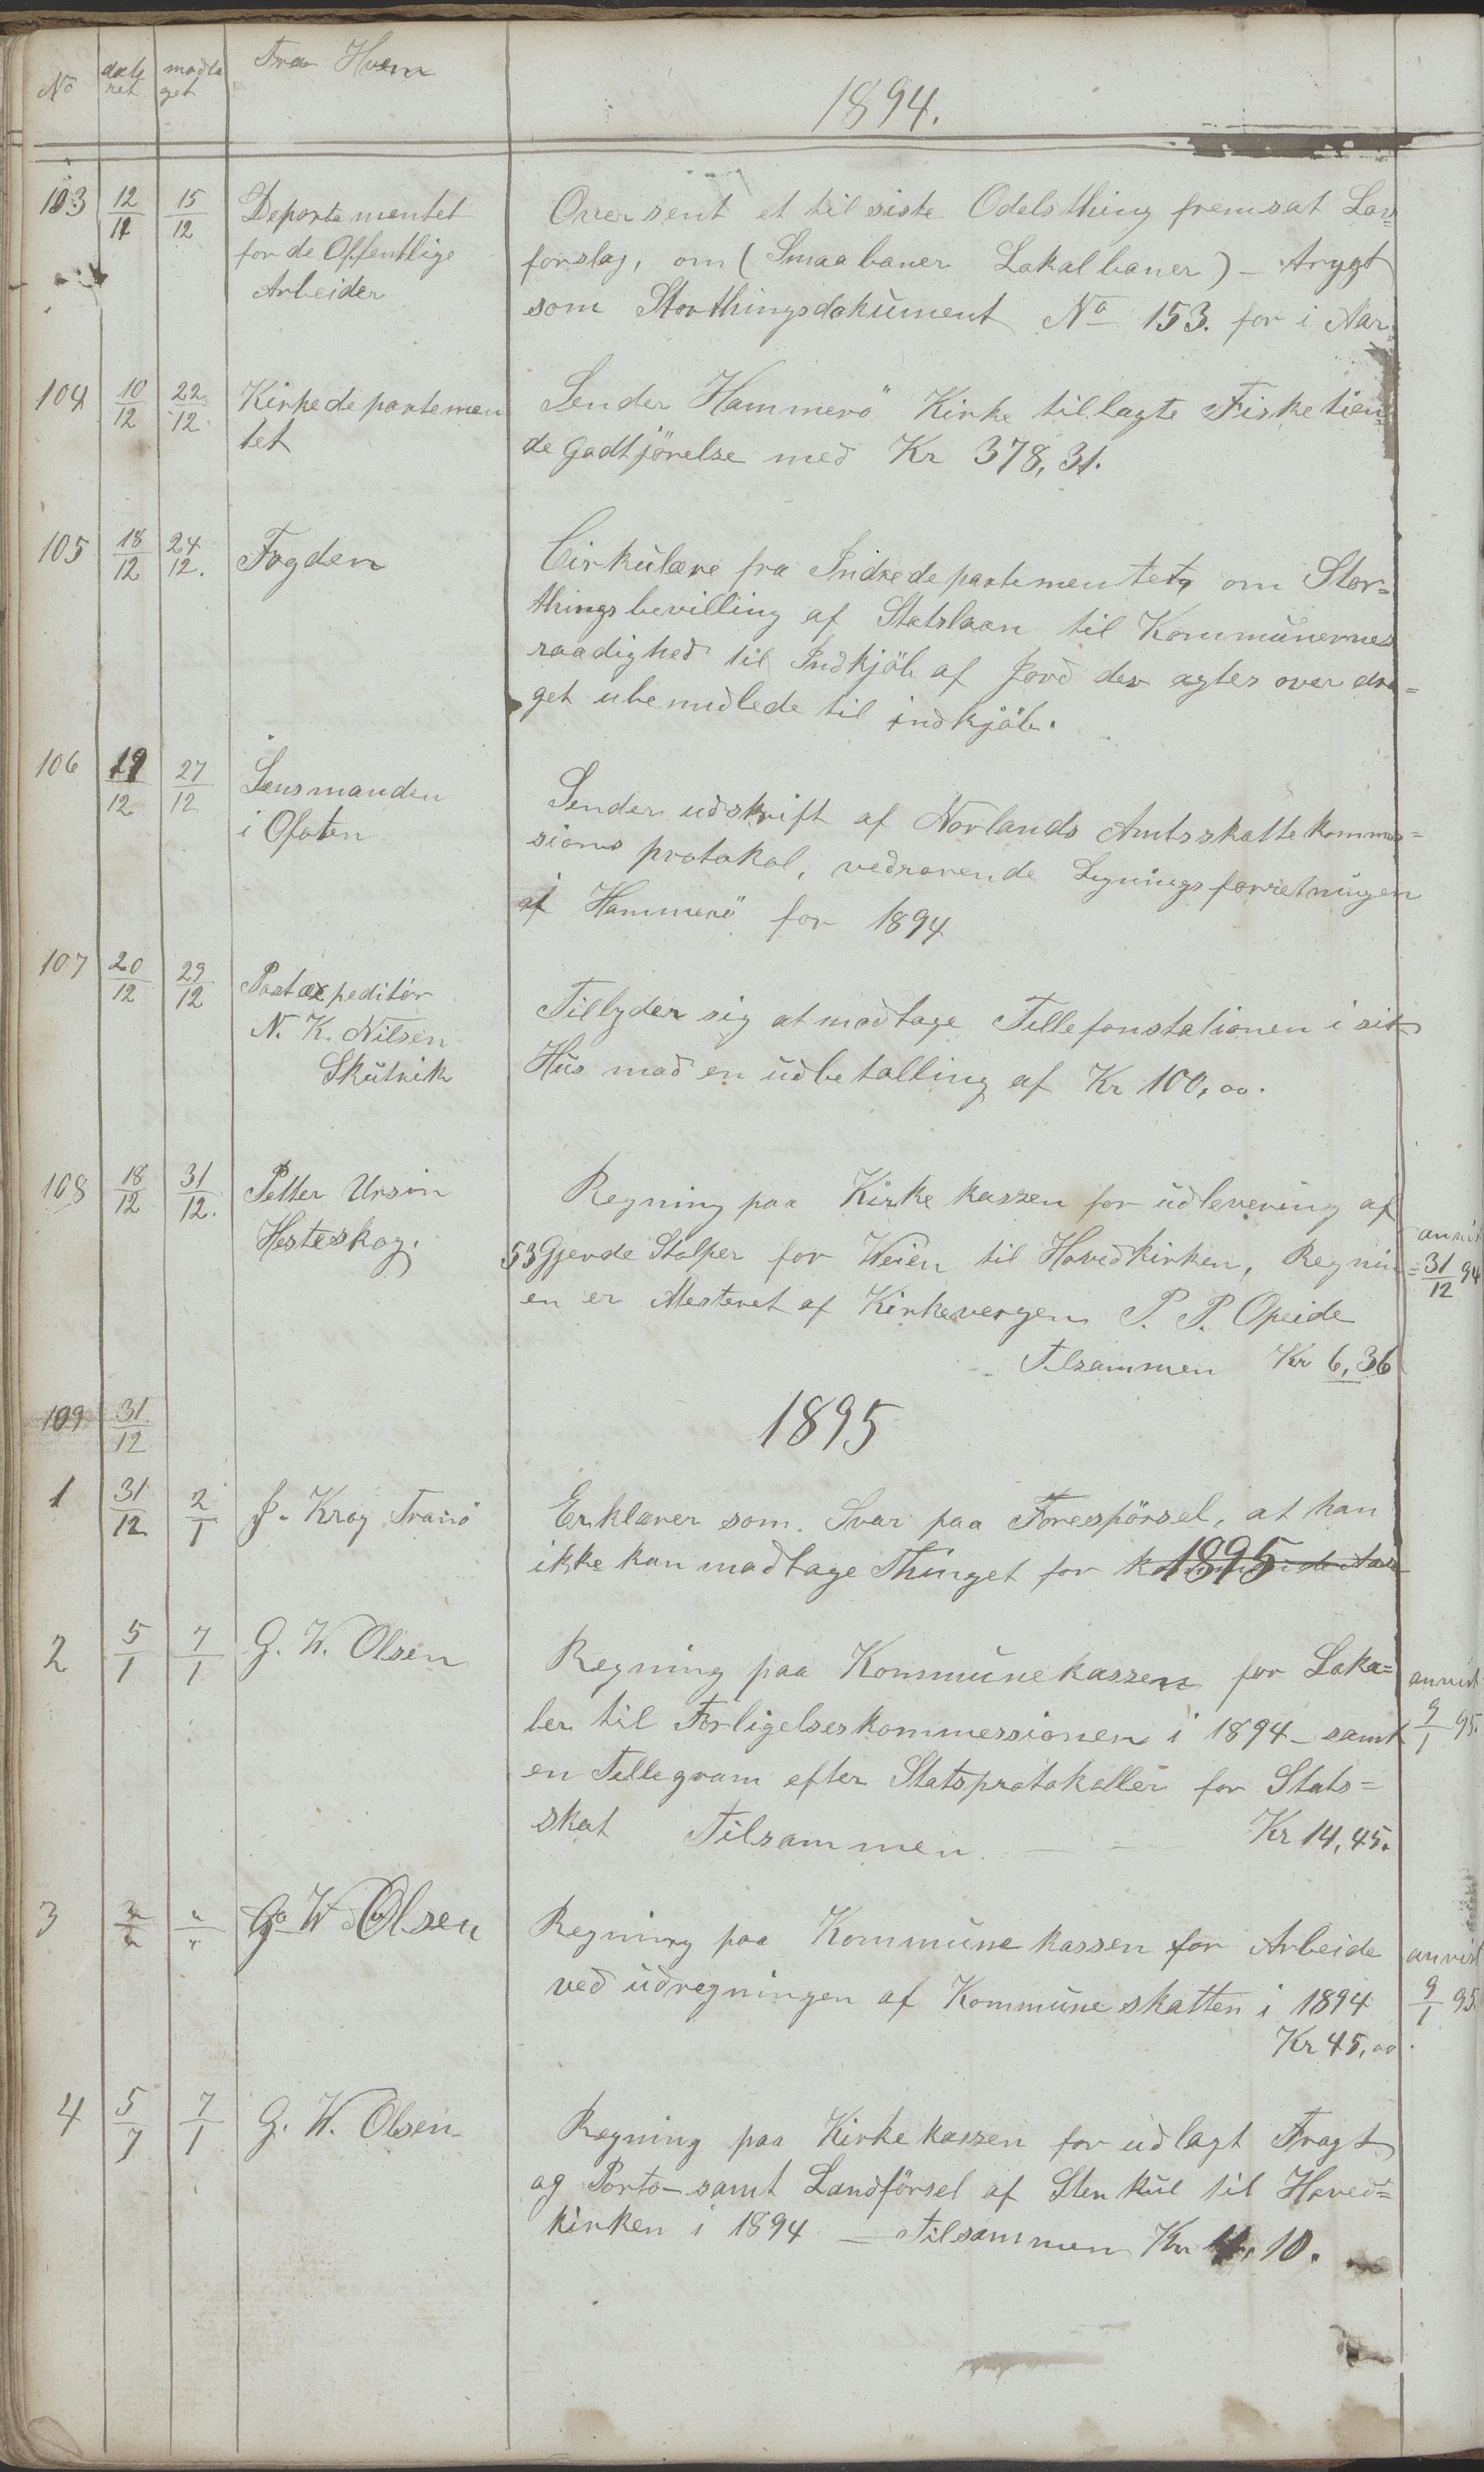 No date ret modta get Fra Hvem
1894.
103 12/12 15/12 Departementet Oversent et til siste Odelsthing fremsat Lov=
for de Offentlige forslag, om (Smaabaner Lokalbaner) – trygt
Arbeider som Storthingsdokument No 153. for i Aar.
104 10/12 22/12 Kirkedepartemen Sender Hammerö Kirke tillagte Fisketien=
tet de Godtjörelse med Kr 378,31.
105 18/12 24/12. Fogden Cirkulære fra Indredepartementet, om Stor=
thingsbevilling af Statslaan til Kommunernes
raadighed til Indkjöb af Jord der agtes overdra=
get ubemidlede til indkjöb.
106 19/12 27/12 Lensmanden Sender udskrift af Norlands Amtsskattekommes=
i Ofoten sions protokol, vedrørende Ligningsforretningen
af Hammerö for 1894
107 20/12 29/12 Postexpeditör Tilbyder sig at modtage Tellefonstationen i sit
N. K. Nilsen Hus mod en udbetalling af Kr 100,00.
Skutvik
108 18/12 31/12. Petter Ursin Regning paa Kirkekassen for udlevering af
Hesteskog. 53 Gjerde Stolper for Veien til Hovedkirken, Regnin= anvist 31/12 94
en er Atesteret af Kirkevergen P. P. Opeide
Tilsammen Kr 6,36
109 31/12
1895
1 31/12 2/1 J. Krog Tranö Erklærer som Svar paa Forespörsel, at han
ikke kan modtage Thinget for 1895
2 5/1 7/1 G. W. Olsen Regning paa Kommunekassen for Loka= anvist
ler til Forligelseskommessionen i 1894 – samt 9/1 95.
en Tellegram efter Statsprotokoller for Stats=
skat Tilsammen — — Kr 14,45.
3 "/" "/" G. W. Olsen Regning paa Kommunekassen for Arbeide anvist
ved udregningen af Kommuneskatten i 1894 9/1 95.
Kr 45,00.
4 5/7 7/1 G. W. Olsen Regning paa Kirkekassen for udlagt Fragt
og Porto – samt Landförsel af Stenkul til Hoved=
kirken i 1894 — Tilsammen Kr 4,10.